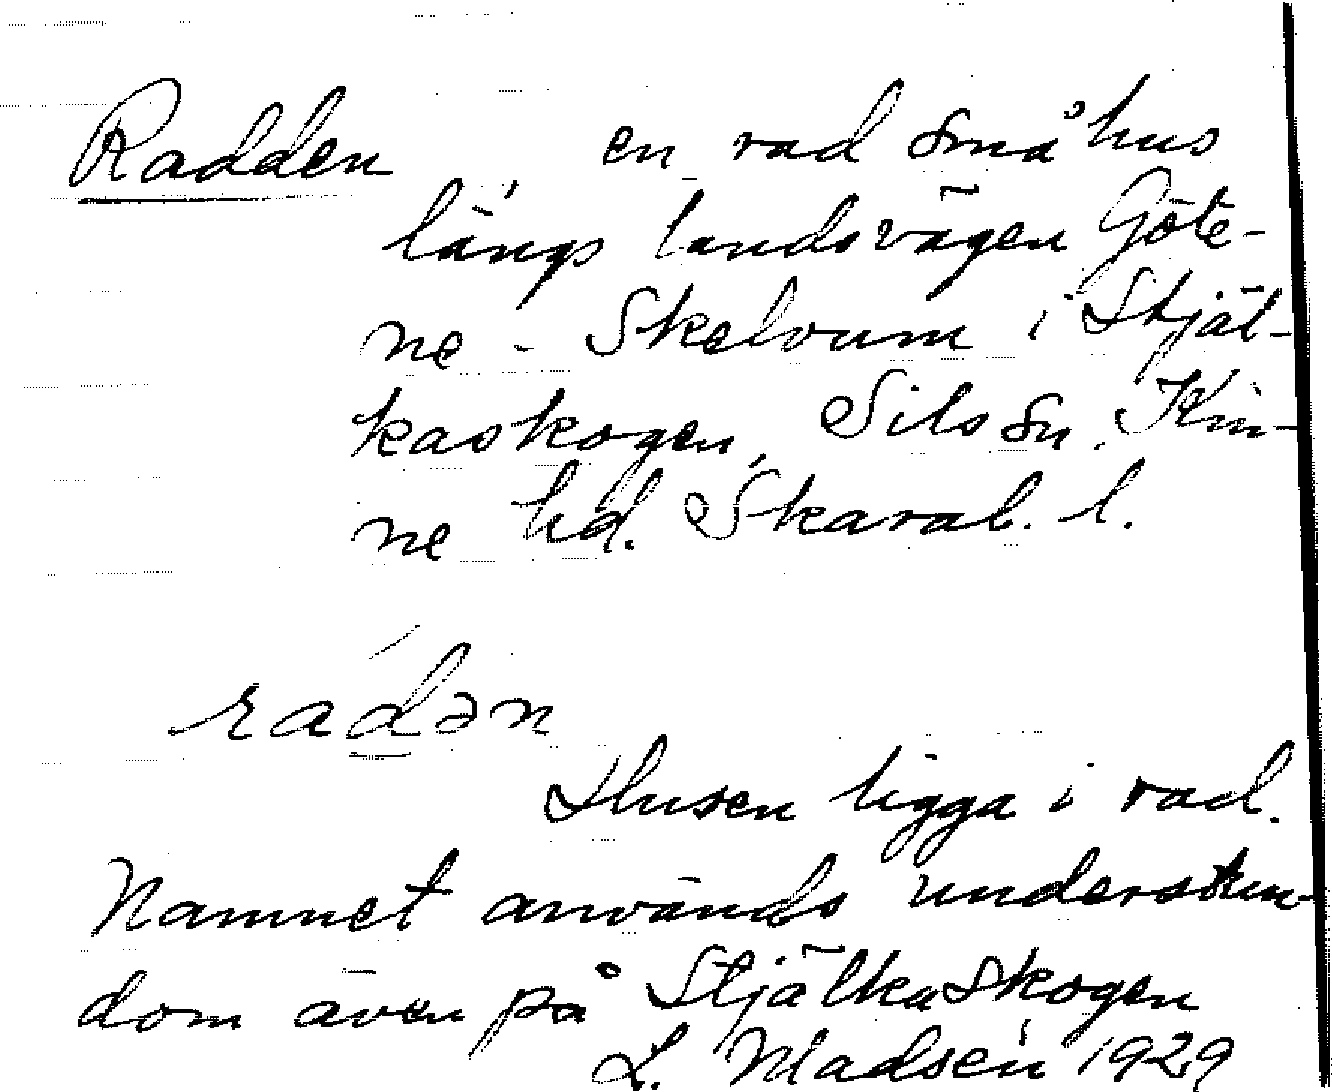 Radden en rad småhus
längs landsvägen Göte-
ne - Skelvum i Stjäl-
kaskogen, Sils sn. Kin-
ne hd. Skarab. l.
rádən
Husen ligga i rad.
Namnet används understun-
dom även på Stjälkaskogen
L. Madsén 1929